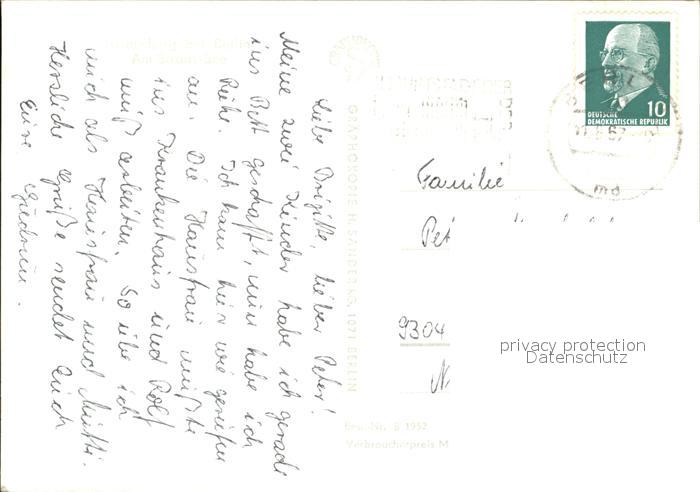 Liebe Brigitte, lieber Peter!
Meine zwei Kinder habe ich gerade
ins Bett geschafft, nun habe ich
Ruhe. Ich kam hier wie gerufen
an. Die Hausfrau mußte
ins Krankenhaus und Rolf
muß arbeiten. So übe ich
mich als Hausfrau und Mutti.
Herzliche Grüße sendet Euch
Eure
GRAPHOKOPIE H. SANDER KG, 1071 BERLIN
DEUTSCHE
DEMOKRATISCHE REPUBLIK
10
BERLIN
md
Familie
Pet
9304
N
privacy protection
Datenschutz
Best.-Nr. B 1952
Verbraucherpreis M